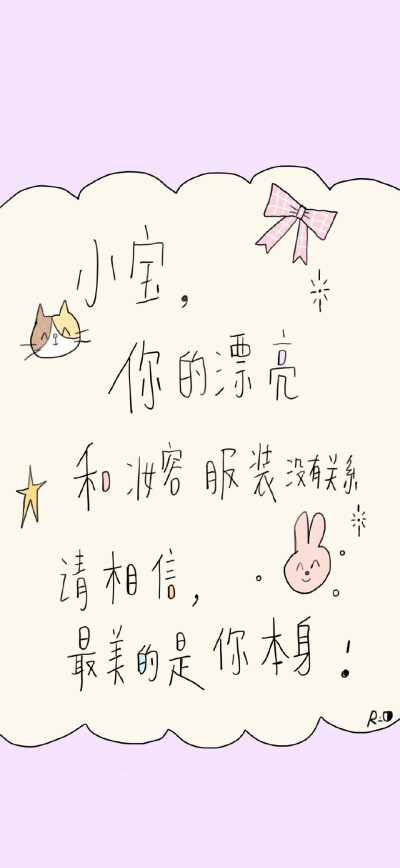 小宝，
你的漂亮
和妆容服装没有关系
请相信，
最美的是你本身！